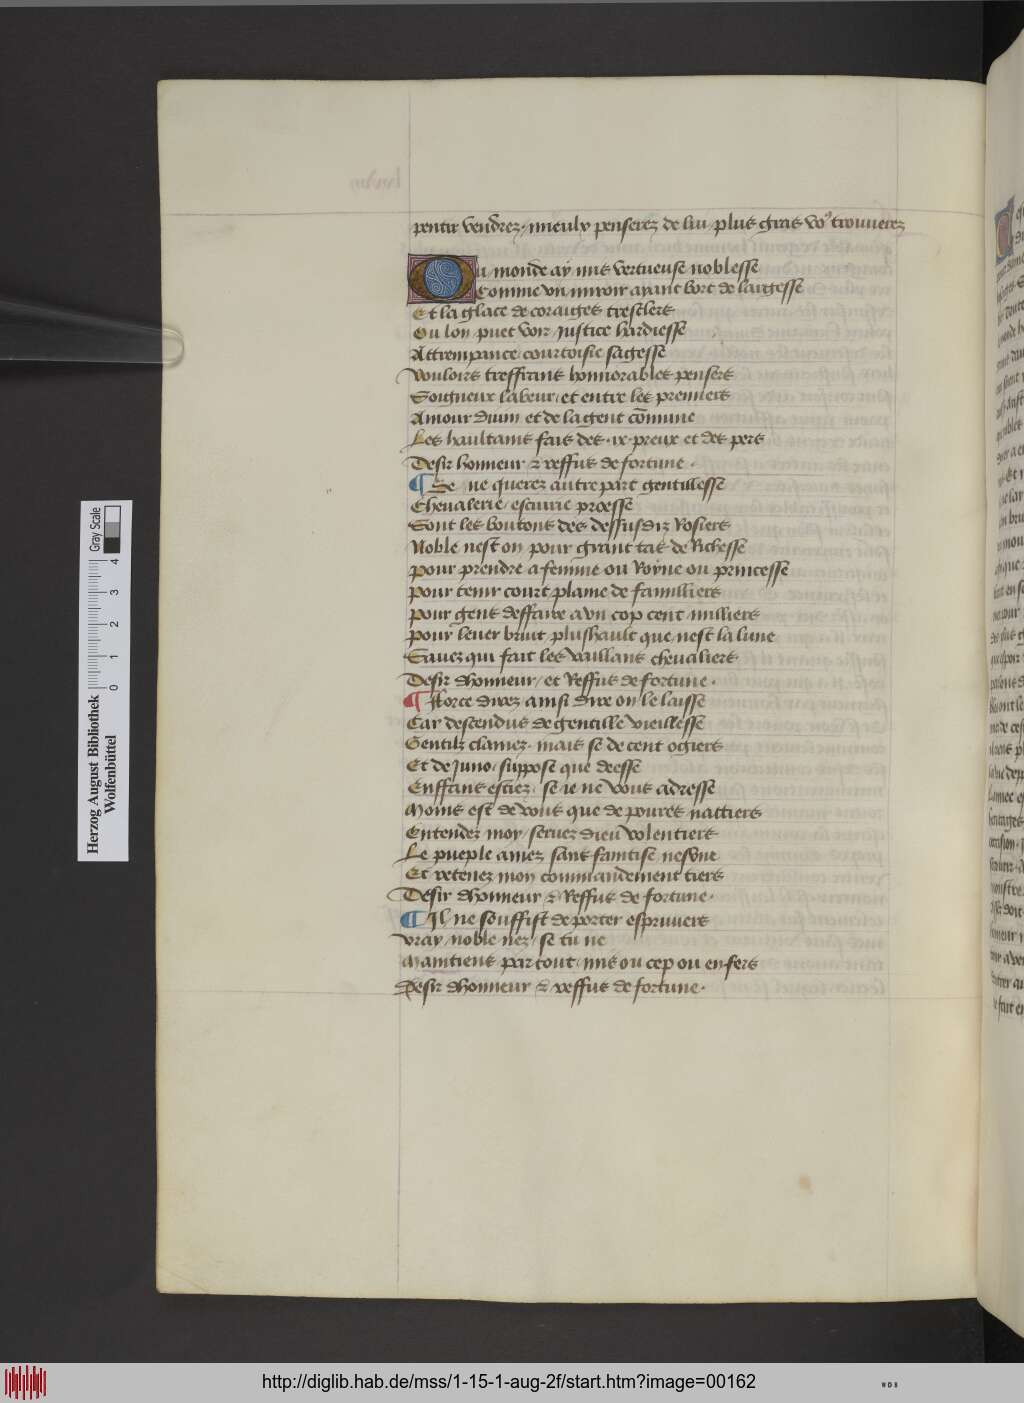 pentir vendrez, mieulx penserez de lui, plus gras vo9 trouuerez
Ou monde ay mis vertueuse noblesse
Comme vn miroir ayant bort de largesse
Et la glace de coraiges tresclers
Ou lon puet voir justice hardiesse
Attrempance courtoisie sagesse
Vouloirs treffrans honnorables pensers
Soigneux labeur, et entre les premiers
Amour diuin et de la gent cõmune
Les haultains fais des .ix. preux et des pers
Desir honneur & reffus de fortune .
¶ Se ne querez autre part gentillesse
Cheualerie, escuirie proesse
Sont les boutons des dessusdiz Rosiers
Noble nest on pour grant tas de Richesse
pour prendre a femme ou Royne ou princesse
pour tenir court plaine de familliers
pour gens deffaire a vn cop cent milliers
pour leuer bruit plushault que nest la lune
Sauez qui fait les vaillans cheualiers
Desir dhonneur, et Reffus de fortune .
¶ Force direz ainsi dire on le laisse
Car descendus de gentille vieillesse
Gentilz clamez . mais se de cent ogiers
Et de Juno, suppose que deesse
Enffans estiez, se ie ne vous adresse
Moins est de vous que de poures nattiers
Entendez moy, seruez dieu volentiers
Le pueple amez sans faintise nesvne
Et retenez mon commandement tiers
Desir dhonneur & Reffus de fortune .
¶ Il ne souffist de porter espriuiers
Vray, noble nez, se tu ne
Maintiens par tout, mis ou cep ou en fers
Desir dhonneur & reffus de fortune .
Herzog August Bibliothek
Wolfenbüttel
0 1 2 3 4
Gray Scale
http://diglib.hab.de/mss/1-15-1-aug-2f/start.htm?image=00162
WDB